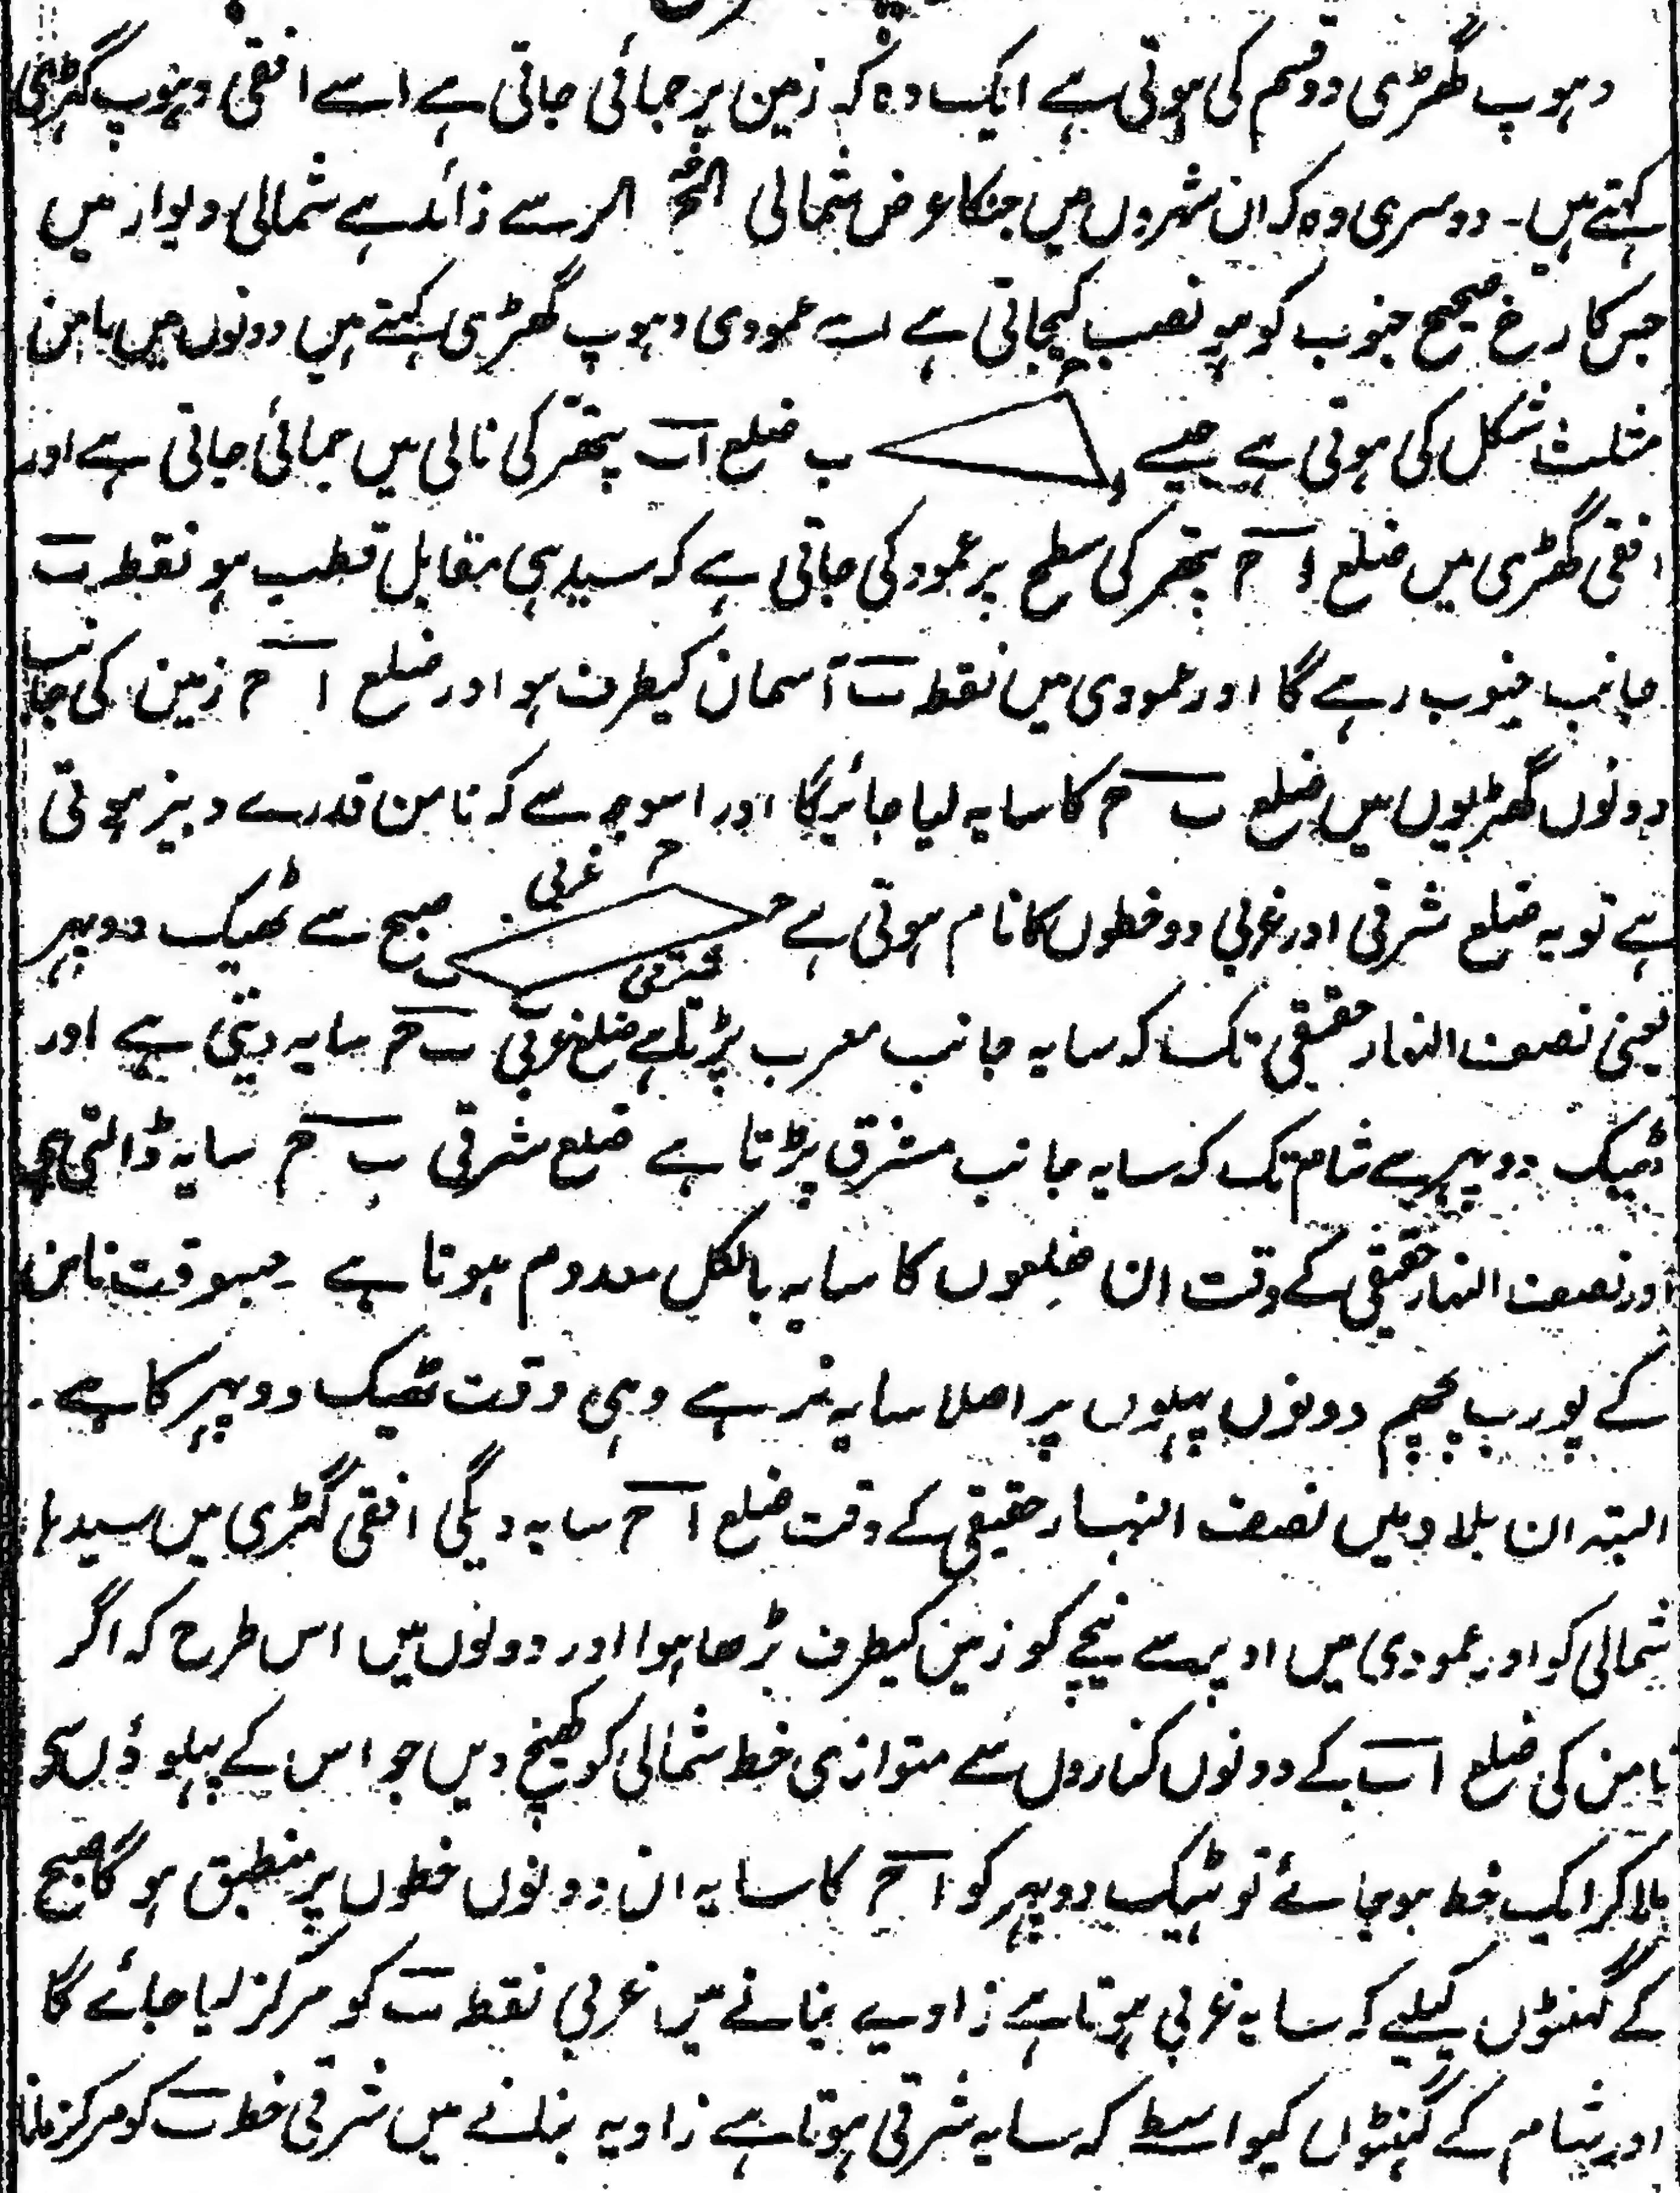 دہوپ گھڑی دو قسم کی ہوتی ہے ایک وہ کہ زمین پر جمائی جاتی ہے اسے افقی دہوپ گہڑی
کہتے ہیں۔ دوسری وہ کہ ان شہروں میں جنکا عرض شمالی الر سے زائد ہے شمالی دیوار میں
جس کا رخ صحیح جنوب کو ہو نصب کیجاتی ہے اسے عمودی دہوپ گھڑی کہتے ہیں دونوں میں نامن
مثلث شکل کی ہوتی ہے جیسے ء ح ب ضلع اب پتھر کی نالی میں جمائی جاتی ہے اور
افقی گھڑی میں ضلع ا ح پتھر کی سطح پر عمود کی جاتی ہے کہ سیدہی مقابل قطب ہو نقطہ ب
جانب جنوب رہے گا اور عمودی میں نقطہ ب آسمان کیطرف ہو اور ضلع ا ح زمین کی جانب
دونوں گھڑیوں میں ضلع ب ح کا سایہ لیا جائیگا اور اسوجہ سے کہ نامن قدرے دبیز ہوتی
ہے تو یہ ضلع شرقی اور غربی دو خطوں کا نام ہوتی ہے ح ح غربی ب شرقی ب صبح سے ٹھیک دوپہر
یعنی نصف النہار حقیقی تک کہ سایہ جانب مغرب پڑتا ہے ضلع غربی ب ح سایہ دیتی ہے اور
ٹھیک دوپہر سے شام تک کہ سایہ جانب مشرق پڑتا ہے ضلع شرقی ب ح سایہ ڈالتی ہے
اور نصف النہار حقیقی کے وقت ان ضلعوں کا سایہ بالکل معدوم ہوتا ہے ۔ جسوقت نامن
کے پورب پچھم دونوں پہلوں پر اصلا سایہ نہ رہے وہی وقت ٹھیک دوپہر کا ہے۔
البتہ ان بلاد میں نصف النہار حقیقی کے وقت ضلع ا ح سایہ دیگی افقی گہڑی میں سیدہا
شمالی کو اور عمودی میں اوپر سے نیچے کو زمین کیطرف بڑھا ہوا اور دونوں میں اس طرح کہ اگر
نامن کی ضلع اب کے دونوں کناروں سے متوازی خط شمالی کو کھینچ دیں جو اس کے پہلوؤں سے
ملا کر ایک خط ہو جائے تو ٹہیک دوپہر کو ا ح کا سایہ ان دونوں خطوں پر منطبق ہو گا صبح
کے گہنٹوں کیلیے کہ سایہ غربی ہوتا ہے زاویے بنانے میں غربی نقطہ ب کو مرکز لیا جائے گا
اور شام کے گہنٹوں کیواسطے کہ سایہ شرقی ہوتا ہے زاویہ بنانے میں شرقی خط ب کو مرکز مانا